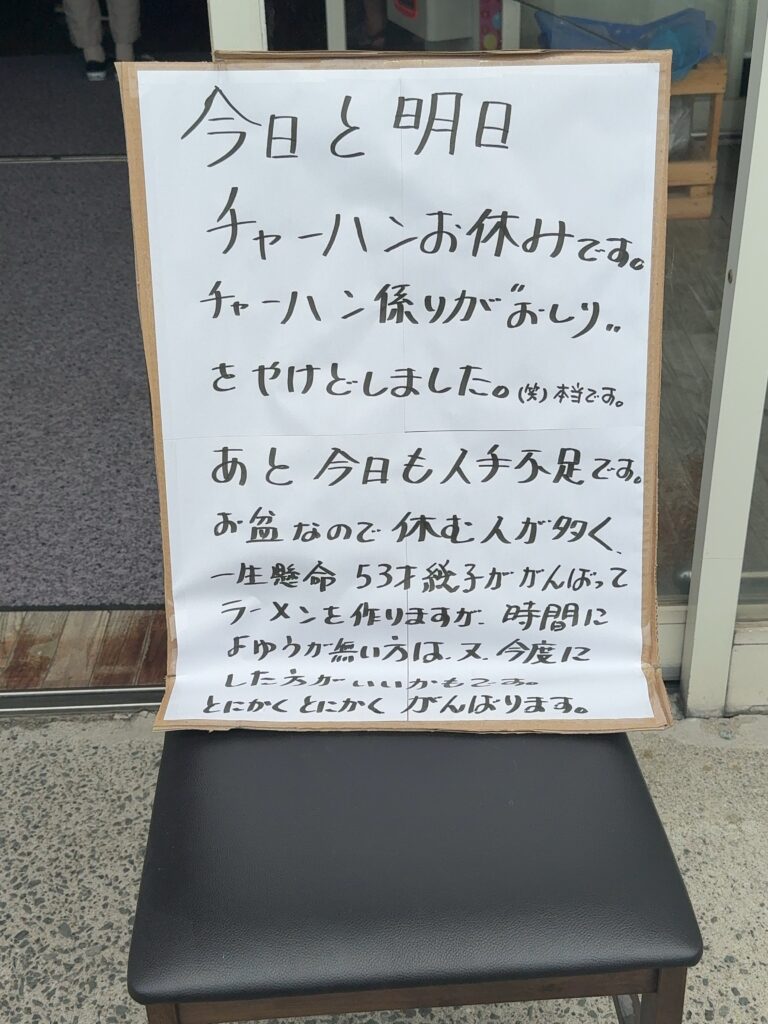 今日と明日
チャーハンお休みです。
チャーハン係りが"おしり"
をやけどしました。(笑)本当です。
あと 今日も人手不足です。
お盆なので 休む人が多く、
一生懸命 53才 子ががんばって
ラーメンを作りますが、時間に
よゆうが無い方は、又、今度に
した方がいいかもです。
とにかくとにかく がんばります。